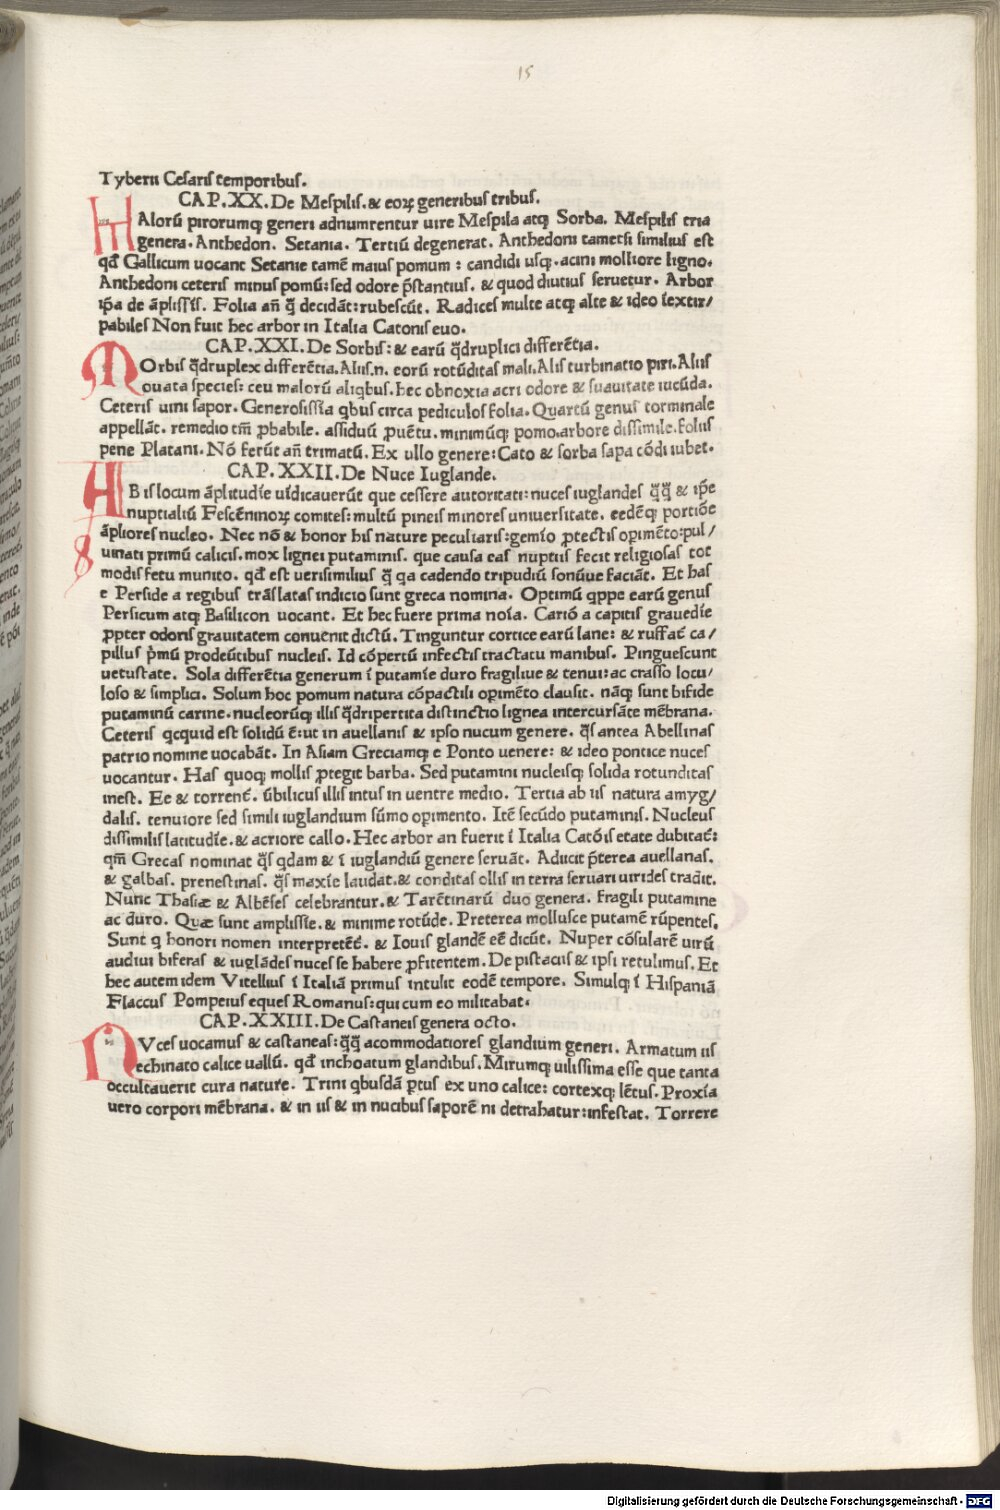 15
Tyberii Cesaris temporibus.
CAP.XX.De Mespilis.& eoꝝ generibus tribus.
MAlorū pirorumq̢ generi adnumrentur uire Mespila atq̢ Sorba. Mespilis tria
genera. Anthedon. Setania. Tertiū degenerat. Anthedoni tametsi similius est
qđ Gallicum uocant Setanie tamē maius pomum : candidi usq̢. acini molliore ligno.
Anthedoni ceteris minus pomū: sed odore p̄stantius. & quod diutius seruetur. Arbor
ip̄a de āplissīs. Folia añ q̄ decidāt: rubescūt. Radices multe atq̢ alte & ideo īextir/
pabiles Non fuit hec arbor in Italia Catonis euo.
CAP.XXI.De Sorbis: & earū q̄druplici differētia.
MOrbis q̄druplex differētia. Aliis.n. eorū rotūditas mali. Alis turbinatio piri. Aliis
ouata species: ceu malorū aliqbus. hec obnoxia acri odore & suauitate iucūda.
Ceteris uini sapor. Generosissīa qbus circa pediculos folia. Quartū genus torminale
appellāt. remedio tm̄ ꝓbabile. assiduū ꝓuētu. minimūq̢ pomo. arbore dissimile. foliis
pene Platani. Nō ferūt añ trimatū. Ex ullo genere: Cato & sorba sapa cōdi iubet.
CAP.XXII.De Nuce Iuglande.
ABis locum āplitudīe uīdicauerūt que cessere autoritati: nuces iuglandes q̄q̄ & ip̄e
nuptialiū Fescēninoꝝ comites: multū pineis minores uniuersitate. eedēq̢ portiōe
āpliores nucleo. Nec nō & honor his nature peculiaris: gemīo ꝓtectis opimēto: pul/
uinati primū calicis. mox lignei putaminis. que causa eas nuptiis fecit religiosas tot
modis fetu munito. qđ est uerisimilius q̄ qa cadendo tripudiū sonūue faciāt. Et has
e Perside a regibus trāslatas indicio sunt greca nomina. Optimū qppe earū genus
Persicum atq̢ Basilicon uocant. Et hec fuere prima noīa. Cariō a capitis grauedīe
ꝓpter odoris grauitatem conuenit dictū. Tinguntur cortice earū lane: & ruffat̄ ca/
pillus p̄mū prodeūtibus nucleis. Id cōpertū infectis tractatu manibus. Pinguescunt
uetustate. Sola differētia generum ī putamīe duro fragiliue & tenui: ac crasso locu/
loso & simplici. Solum hoc pomum natura cōpactili opimēto clausit. nāq̢ sunt bifide
putaminū carine. nucleorūq̢ illis q̄dripertita distinctio lignea intercursāte mēbrana.
Ceteris qcquid est solidū ē: ut in auellanis & ipso nucum genere. q̄s antea Abellinas
patrio nomine uocabāt. In Asiam Greciamq̢ e Ponto uenere: & ideo pontice nuces
uocantur. Has quoq̢ mollis ꝓtegit barba. Sed putamini nucleisq̢ solida rotunditas
inest. Ee & torrent̄. ūbilicus illis intus in uentre medio. Tertia ab iis natura amyg/
dalis. tenuiore sed simili iuglandium sūmo opimento. Itē secūdo putaminis. Nucleus
dissimilis latitudīe. & acriore callo. Hec arbor an fuerit ī Italia Catōis etate dubitat̄:
qm̄ Grecas nominat q̄s qdam & ī iuglandiū genere seruāt. Adicit p̄terea auellanas.
& galbas. prenestinas. q̄s maxīe laudat. & conditas ollis in terra seruari uirides tradit.
Nunc Thasiæ & Albēses celebrantur. & Tarētinarū duo genera. fragili putamine
ac duro. Quæ sunt amplissīe. & minime rotūde. Preterea mollusce putamē rūpentes.
Sunt q honori nomen interpretēt̄. & Iouis glandē eē dicūt. Nuper cōsularē uirū
audiui biferas & iuglādes nuces se habere ꝓfitentem. De pistaciis & ipsi retulimus. Et
hec autem idem Vitellius ī Italiā primus intulit eodē tempore. Simulq̢ ī Hispaniā
Flaccus Pompeius eques Romanus: qui cum eo militabat.
CAP.XXIII.De Castaneis genera octo.
NVces uocamus & castaneas: q̄q̄ acommodatiores glandium generi. Armatum iis
echinato calice uallū. qđ inchoatum glandibus. Mirumq̢ uilissima esse que tanta
occultauerit cura nature. Trini qbusdā ꝑtus ex uno calice: cortexq̢ lētus. Proxīa
uero corpori mēbrana. & in iis & in nucibus saporē ni detrahatur: infestat. Torrere
Digitalisierung gefördert durch die Deutsche Forschungsgemeinschaft - DFG